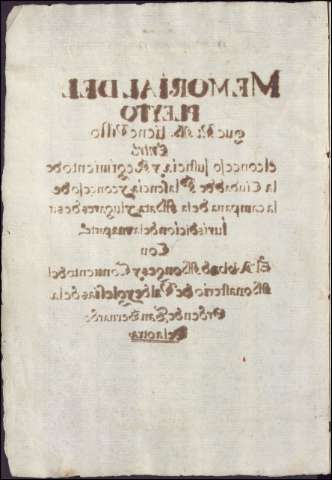 MEMORIAL DEL
PLEYTO
que V. M. tiene Visto
Entre
el conçejo Justicia, y rregimiento de
la Ciudad de Plasencia, y conçejo de
la campana de la Mata y lugares de su
Jurisdicion de la vna parte
Con
El Abad Monges, y Conuento del
Monasterio de Valdeyglesias de la
Orden de San Bernardo
De la otra